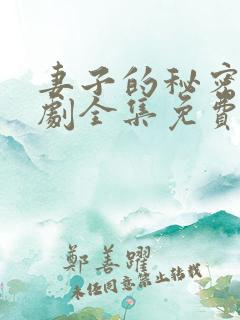 妻子的秘密
劇全集免費
鄭善躍
未任同意禁止转载